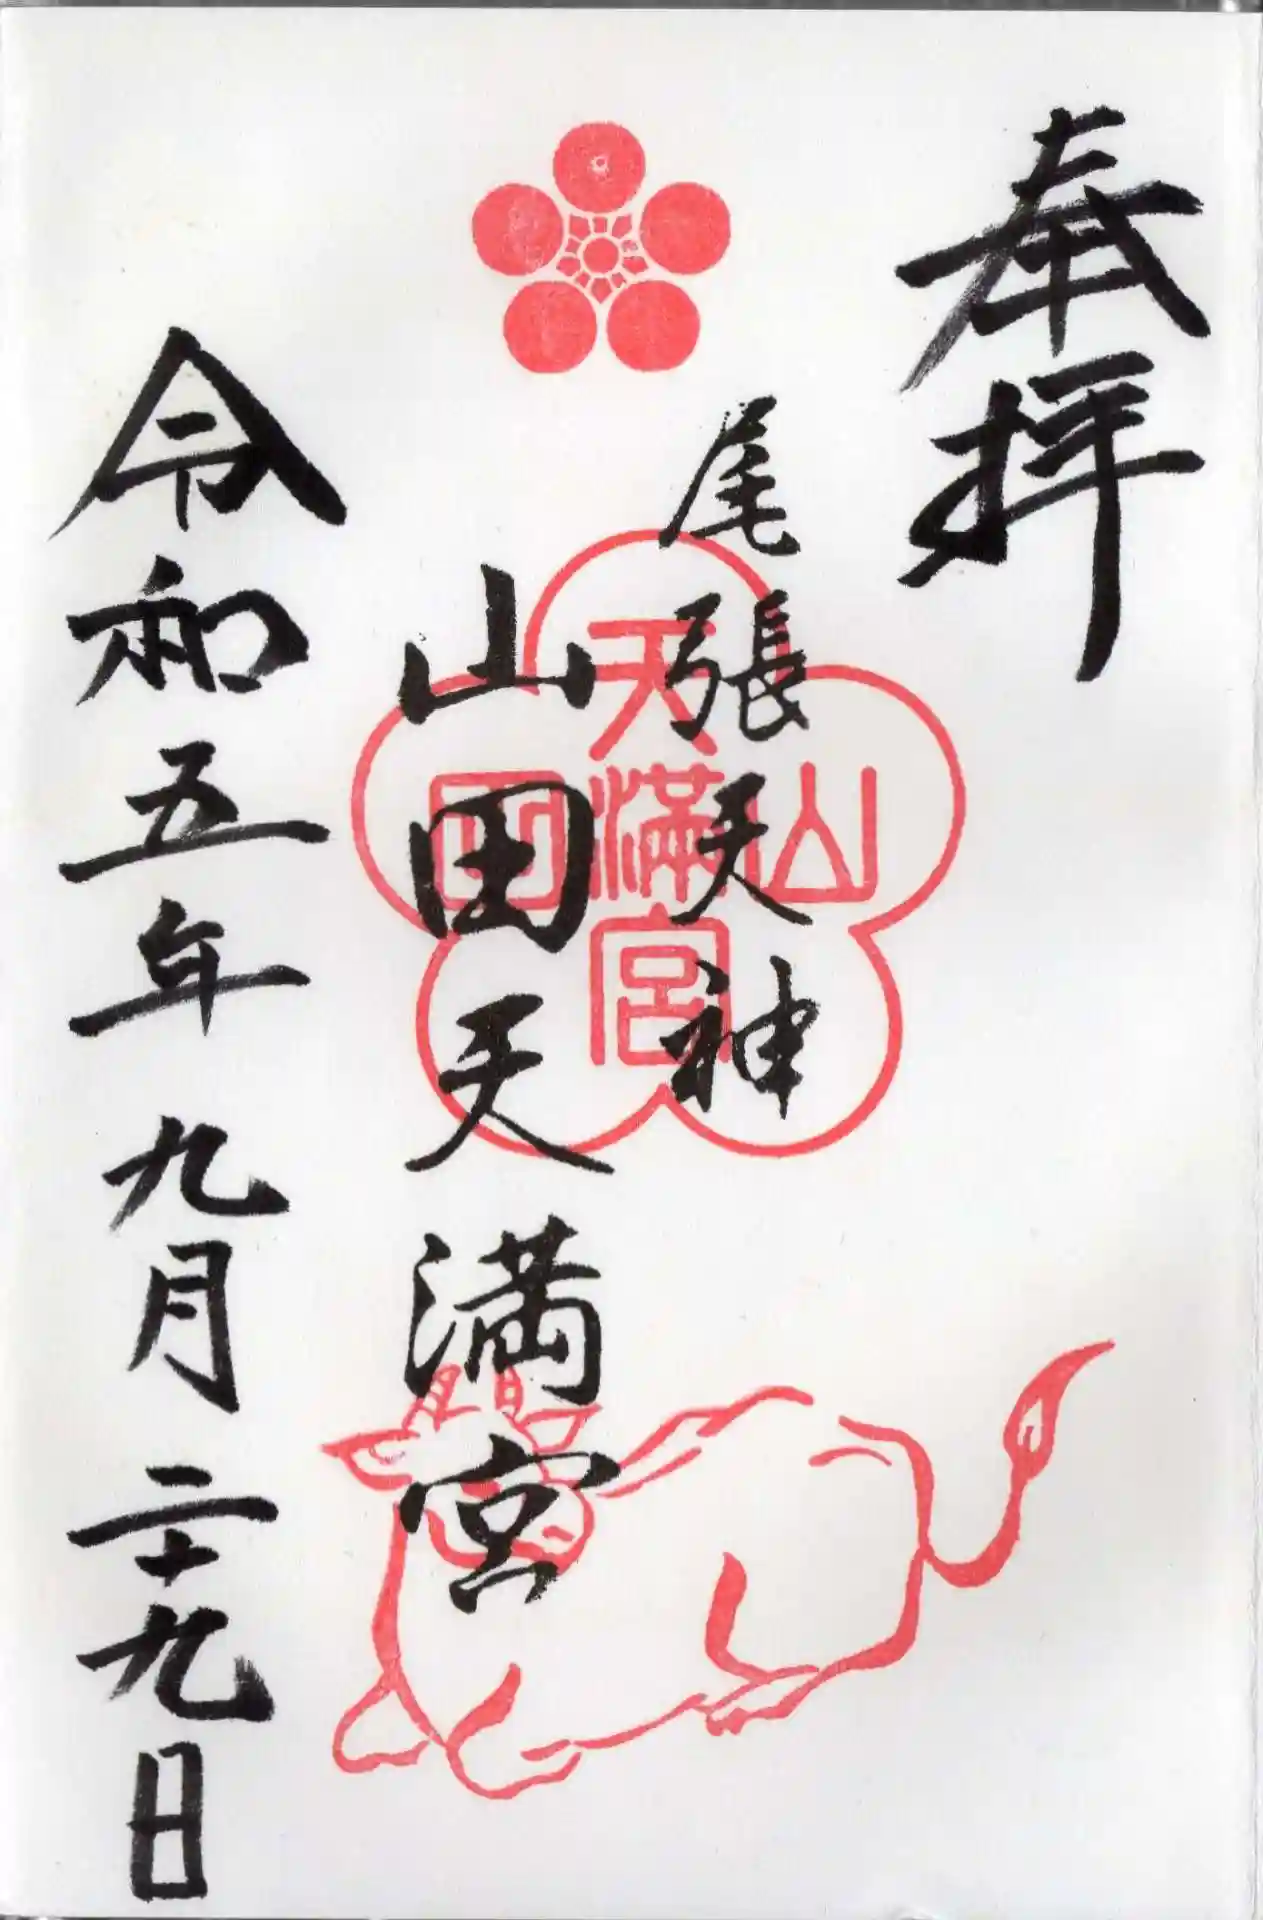 奉拝
尾張天神
山田天満宮
令和五年九月二十九日
山
天満宮
田